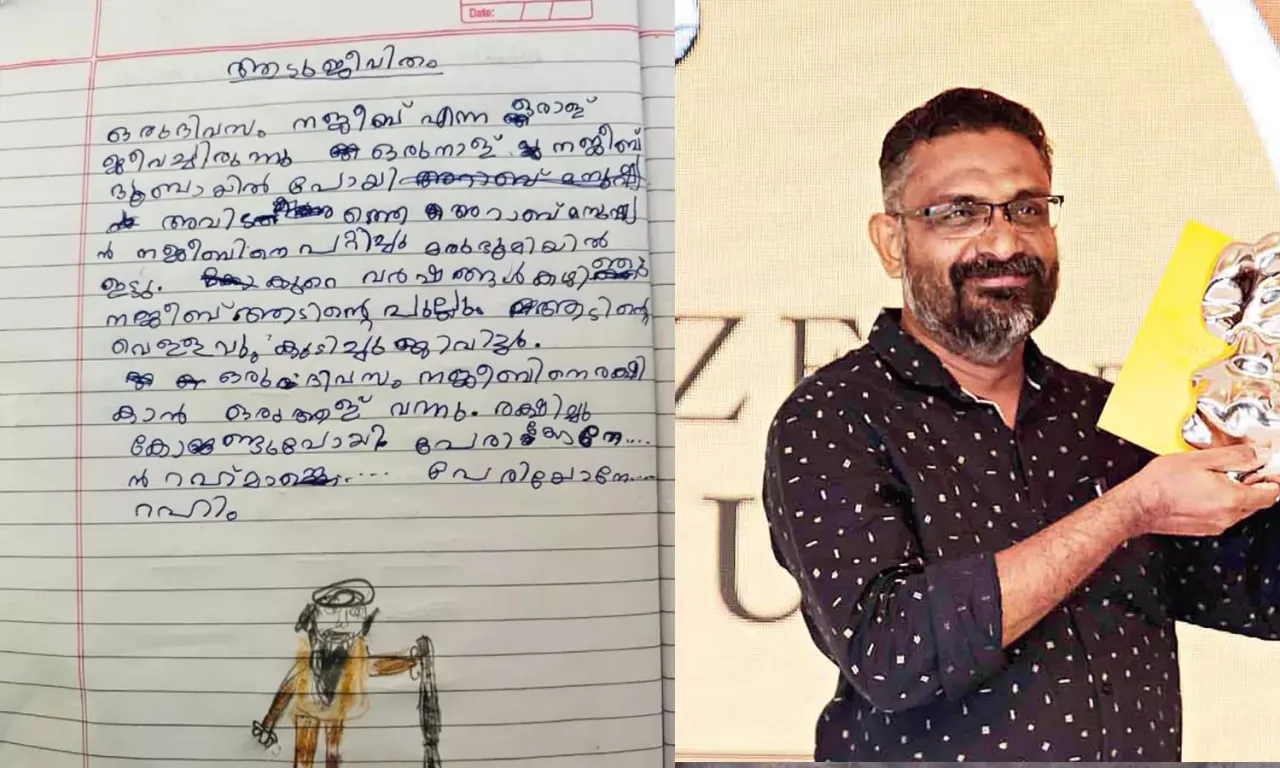 Date:
ആടുജീവിതം
ഒരുദിവസം നജീബ് എന്ന ഒരാള്
ജീവച്ചിരുന്നു ഒരുനാള് നജീബ്
ദുബായിൽ പോയി
അവിട ത്തെ അറാബ് മനുഷ്യ
ൻ നജീബിനെ പറ്റിച്ചു മരുഭൂമിയിൽ
ഇട്ടു. കുറെ വർഷങ്ങൾ കഴിഞ്ഞു
നജീബ് ആടിന്റെ പുല്ലും ആടിന്റെ
വെള്ളവും കുടിച്ചു ജീവിച്ചു.
ഒരു ദിവസം നജീബിനെ രക്ഷി
കാൻ ഒരു ആള് വന്നു. രക്ഷിച്ചു
കോണ്ടുപോയി പേരിയോനേ....
ൻ റഹ്മാ.... പേരിയോനേ....
റഹിം
ZE
U